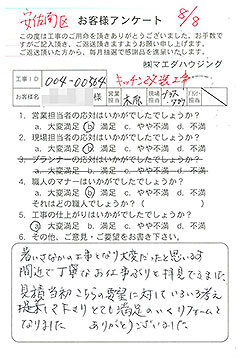 安佐南区 お客様アンケート 8/8
この度は工事のご用命を頂きありがとうございました。お手数で
すがご記入頂き、ご返送頂きますようお願い申し上げます。
ご返送頂いた方から、毎月抽選で感謝品を進呈いたします。
㈱マエダハウジング
工事ID 004-00564 キッチン改装工事
お客様名 様 営業担当 木原 現場担当
1. 営業担当者の応対はいかがでしたでしょうか?
a. 大変満足 b. 満足 c. やや不満 d. 不満
2. 現場担当者の応対はいかがでしたでしょうか?
a. 大変満足 b. 満足 c. やや不満 d. 不満
3. プランナーの応対はいかがでしたでしょうか?
a. 大変満足 b. 満足 c. やや不満 d. 不満
4. 職人のマナーはいかがでしたでしょうか?
a. 大変満足 b. 満足 c. やや不満 d. 不満
それはどの職人でしょうか?(
5. 工事の仕上がりはいかがでしたでしょうか?
a. 大変満足 b. 満足 c. やや不満 d. 不満
6. その他、ご意見・ご要望をお書き下さい。
暑いさなかの工事となり大変だったと思います
間近で丁寧なお仕事ぶりを拝見できました
見積当初こちらの要望に対していろいろ考え
提案して下さりとても満足のいくリフォームと
なりました ありがとうございました